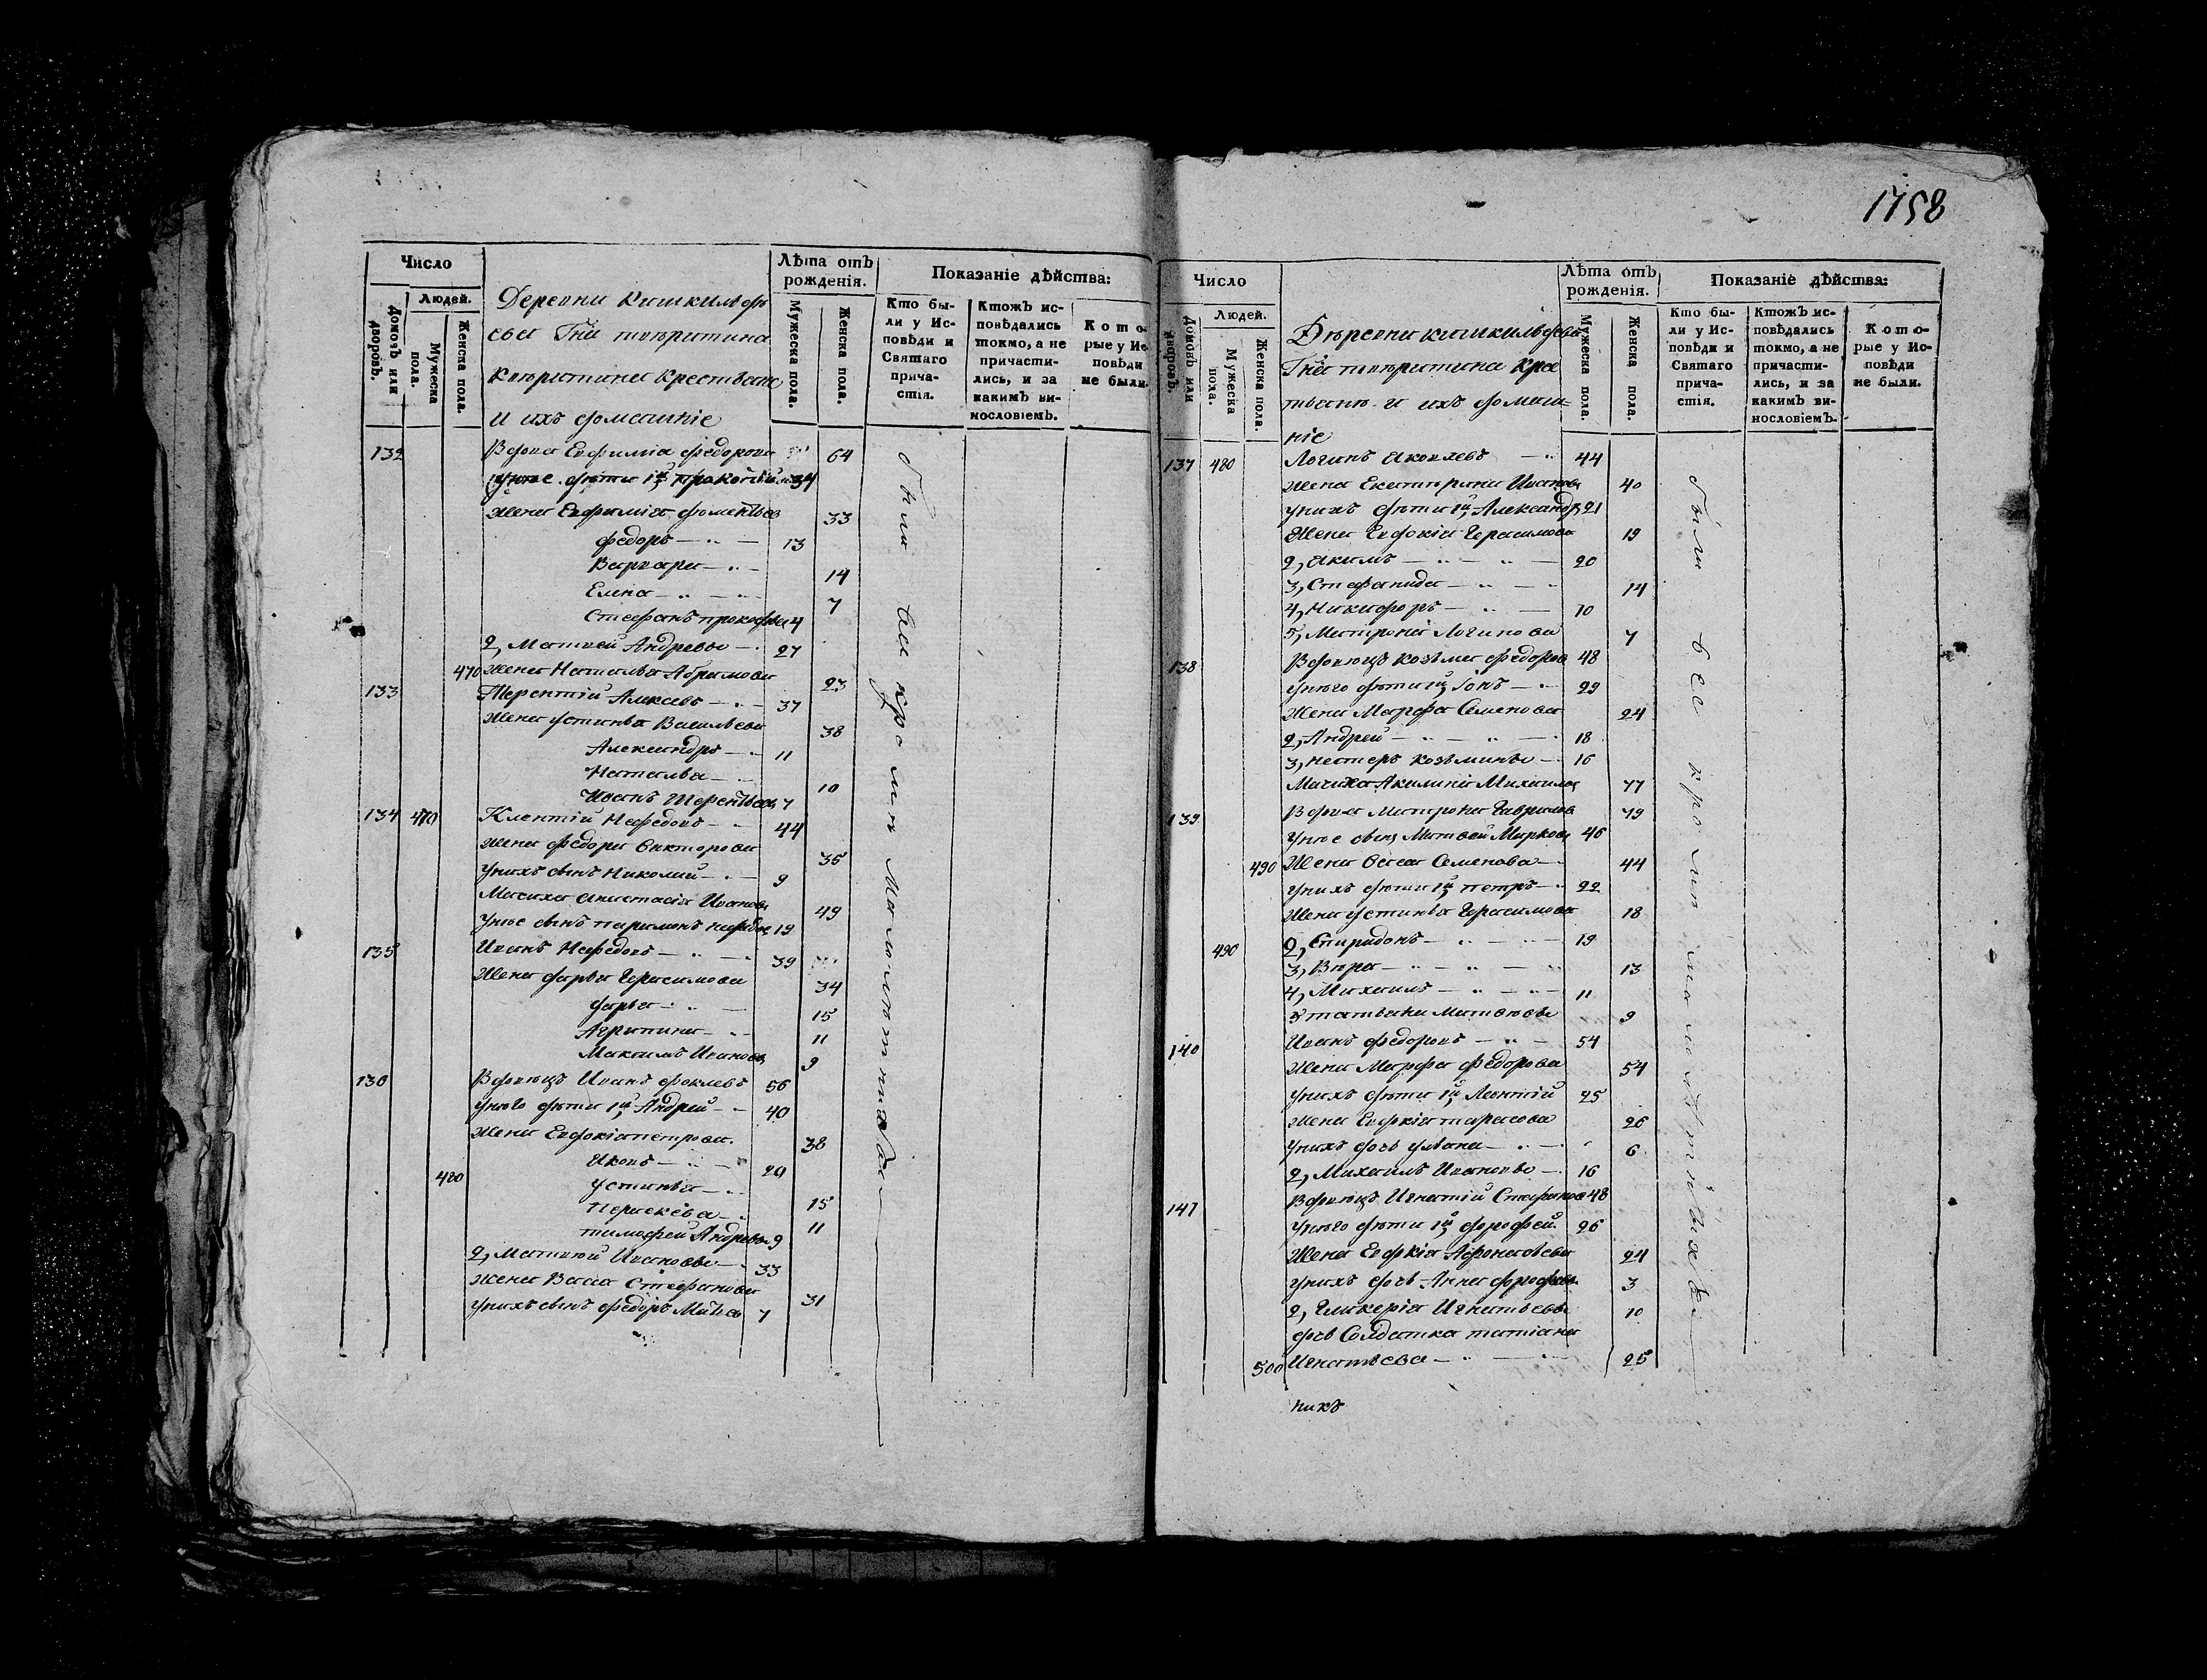 1758
Число
Домовъ или дворовъ.
Людей.
Мужеска пола.
Женска пола.
Деревни
и ихъ домашніе
Лѣта отъ рожденія.
Мужеска пола.
Женска пола.
Показаніе дѣйства:
Кто были у Исповѣди и Святаго причастія.
Ктожъ исповѣдались токмо, а не причастились, и за какимъ винословіемъ.
Которые у Исповѣди не были.
132 Вдова Евфимія Федорова 64
унее дѣти 1й Прокопій 34
жена Евфимія 33
Федоръ 13
Варвара 14
Елена 7
Стефанъ 4
2, Матвей Андреевъ 27
470 жена Наталья 23
133 Терентій Алексевъ 37
жена устинья Васильева 38
Александръ 11
Наталья 10
Иванъ 7
134 470 Клентій Нефедовъ 44
жена Федора Викторова 36
унихъ сынъ Николай 9
Мачиха Анастасія Иванова 49
унее сынъ парамонъ 19
135 Иванъ Нефедовъ 39
жена дарья Герасимова 34
дарья 15
Агрипина 11
Максимъ Ивановъ 9
136 Вдовецъ Иванъ 56
унего дѣти 1й Андрей 40
жена Евдокія петрова 38
Яковъ 20
480 устинья 15
11
тимофей Андреевъ 9
2, Матвей Ивановъ 33
жена Васса Стефанова 31
унихъ сынъ Федоръ 7
были вси кромѣ малолѣтнихъ
Число
Домовъ или дворовъ.
Людей.
Мужеска пола.
Женска пола.
и ихъ домашніе
Лѣта отъ рожденія.
Мужеска пола.
Женска пола.
Показаніе дѣйства:
Кто были у Исповѣди и Святаго причастія.
Ктожъ исповѣдались токмо, а не причастились, и за какимъ винословіемъ.
Которые у Исповѣди не были.
137 480 Логинъ Яковлевъ 44
жена Екатерина Иванова 40
унихъ дѣти 1й Александръ 21
Жена Евдокія Герасимова 19
2, Якимъ 20
3, Стефанида 14
4, Никифоръ 10
5, Матрона Логинова 7
138 Вдовецъ Козьма Федоровъ 48
унего дѣти 1й Іонъ 29
жена Марфа Семенова 24
2, Андрей 18
3, нестеръ козьминъ 16
Мачиха Акилина Михаилова 77
139 Вдова Матрона Гаврилова 79
унее сынъ Матвей Марковъ 46
490 Жена Семенова 44
унихъ дѣти 1й петръ 22
жена устинья Герасимова 18
490 2, Спиридонъ 19
3, Вера 13
4, Михаилъ 11
9
140 Иванъ Федоровъ 54
жена Марфа Федорова 54
унихъ дѣти 1й Леонтій 25
жена Евдокія тарасова 26
унихъ дочь ульяна 6
2, Михаилъ Ивановъ 16
141 Вдовецъ Игнатій Стефановъ 48
унего дѣти 1й дорофей 26
жена Евдокія Афонасьева 24
унихъ дочь Анна 3
2, Гликерія Игнатьева 10
дочь Солдатка татіана
500 Игнатьева 25
нихъ
были вси кромѣ малолѣтнихъ